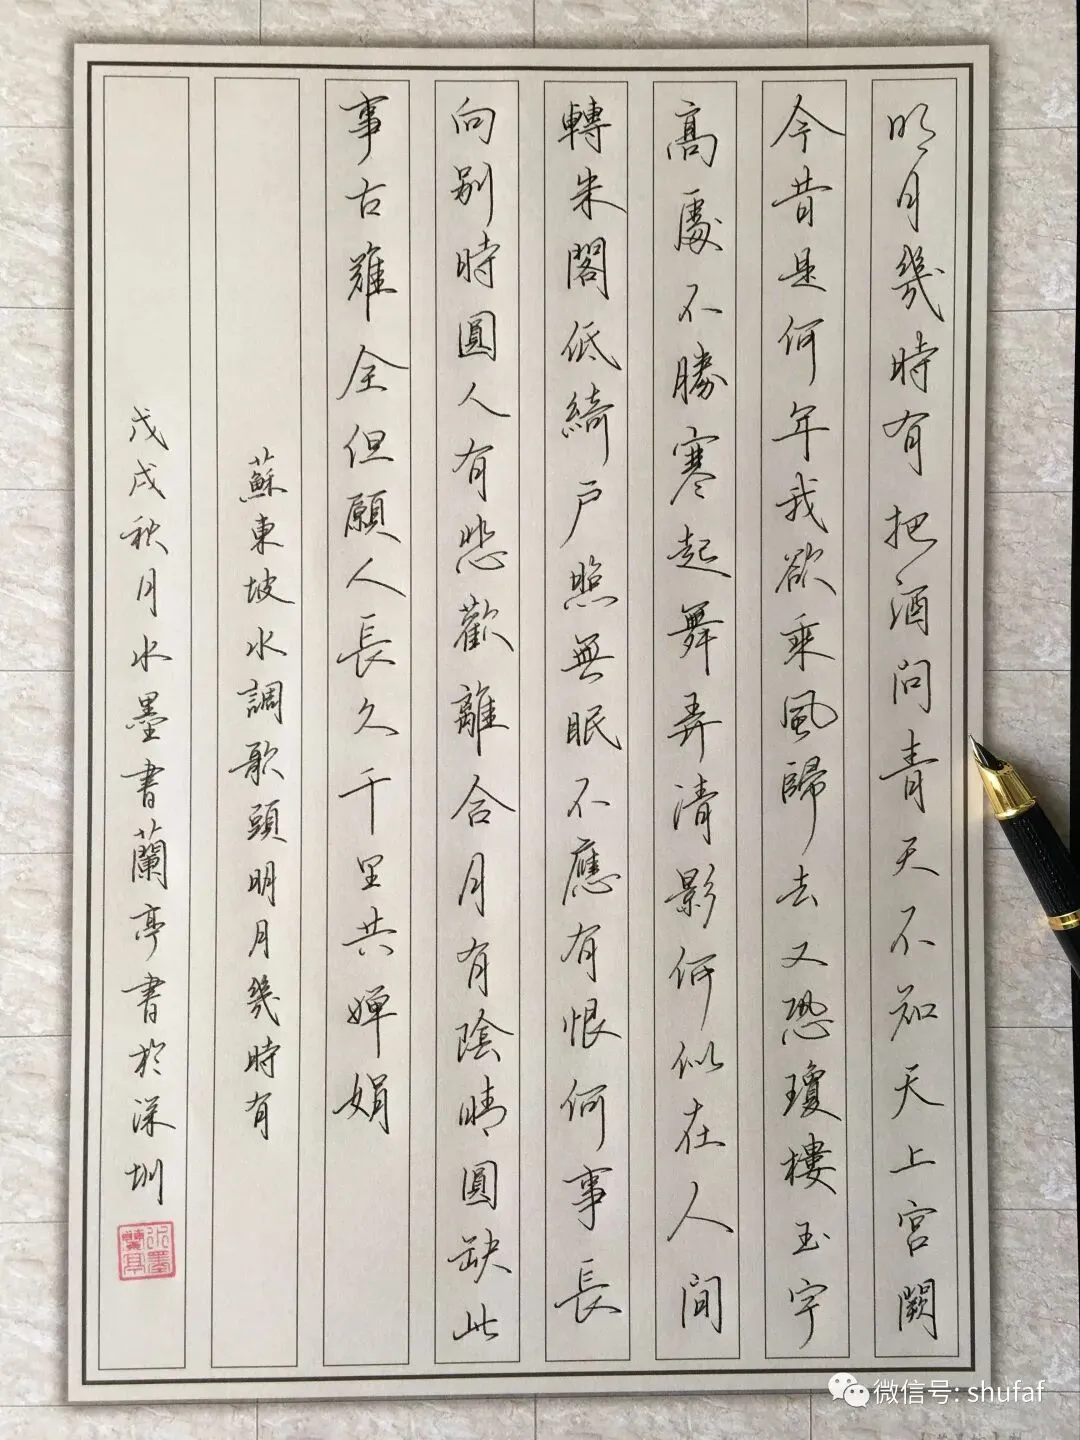 明月幾時有把酒問青天不知天上宮闕
今昔是何年我欲乘風歸去又恐瓊樓玉宇
高處不勝寒起舞弄清影何似在人間
轉朱閣低綺户照無眠不應有恨何事長
向别時圓人有悲歡離合月有陰晴圓缺此
事古難全但願人長久千里共嬋娟
蘇東坡水調歌頭明月幾時有
戊戌秋月水墨書蘭亭書於深圳
水墨蘭亭
微信号: shufaf